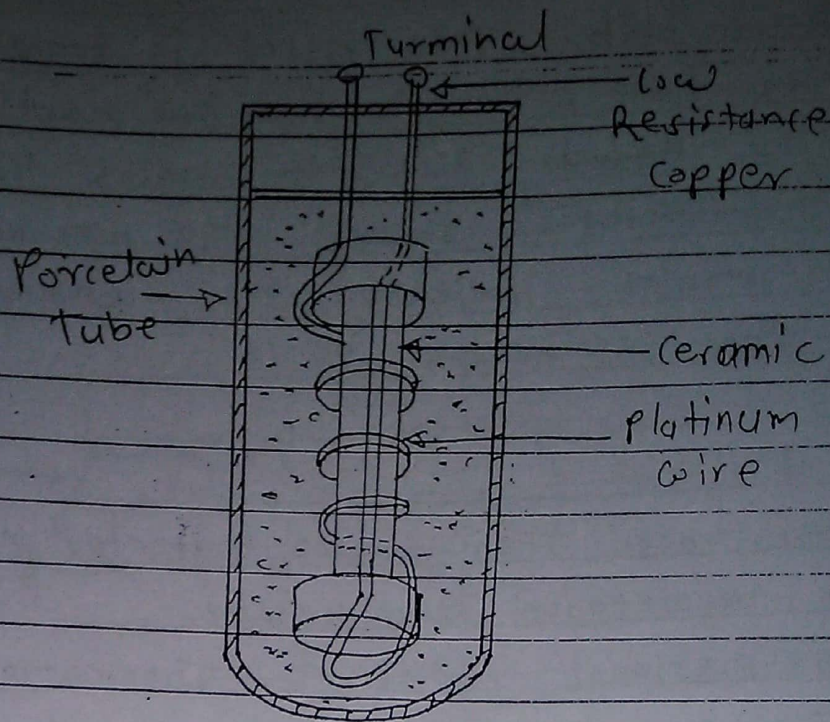 Turminal
Low
Resistance
Copper
Porcelain
Tube
Ceramic
Platinum
wire